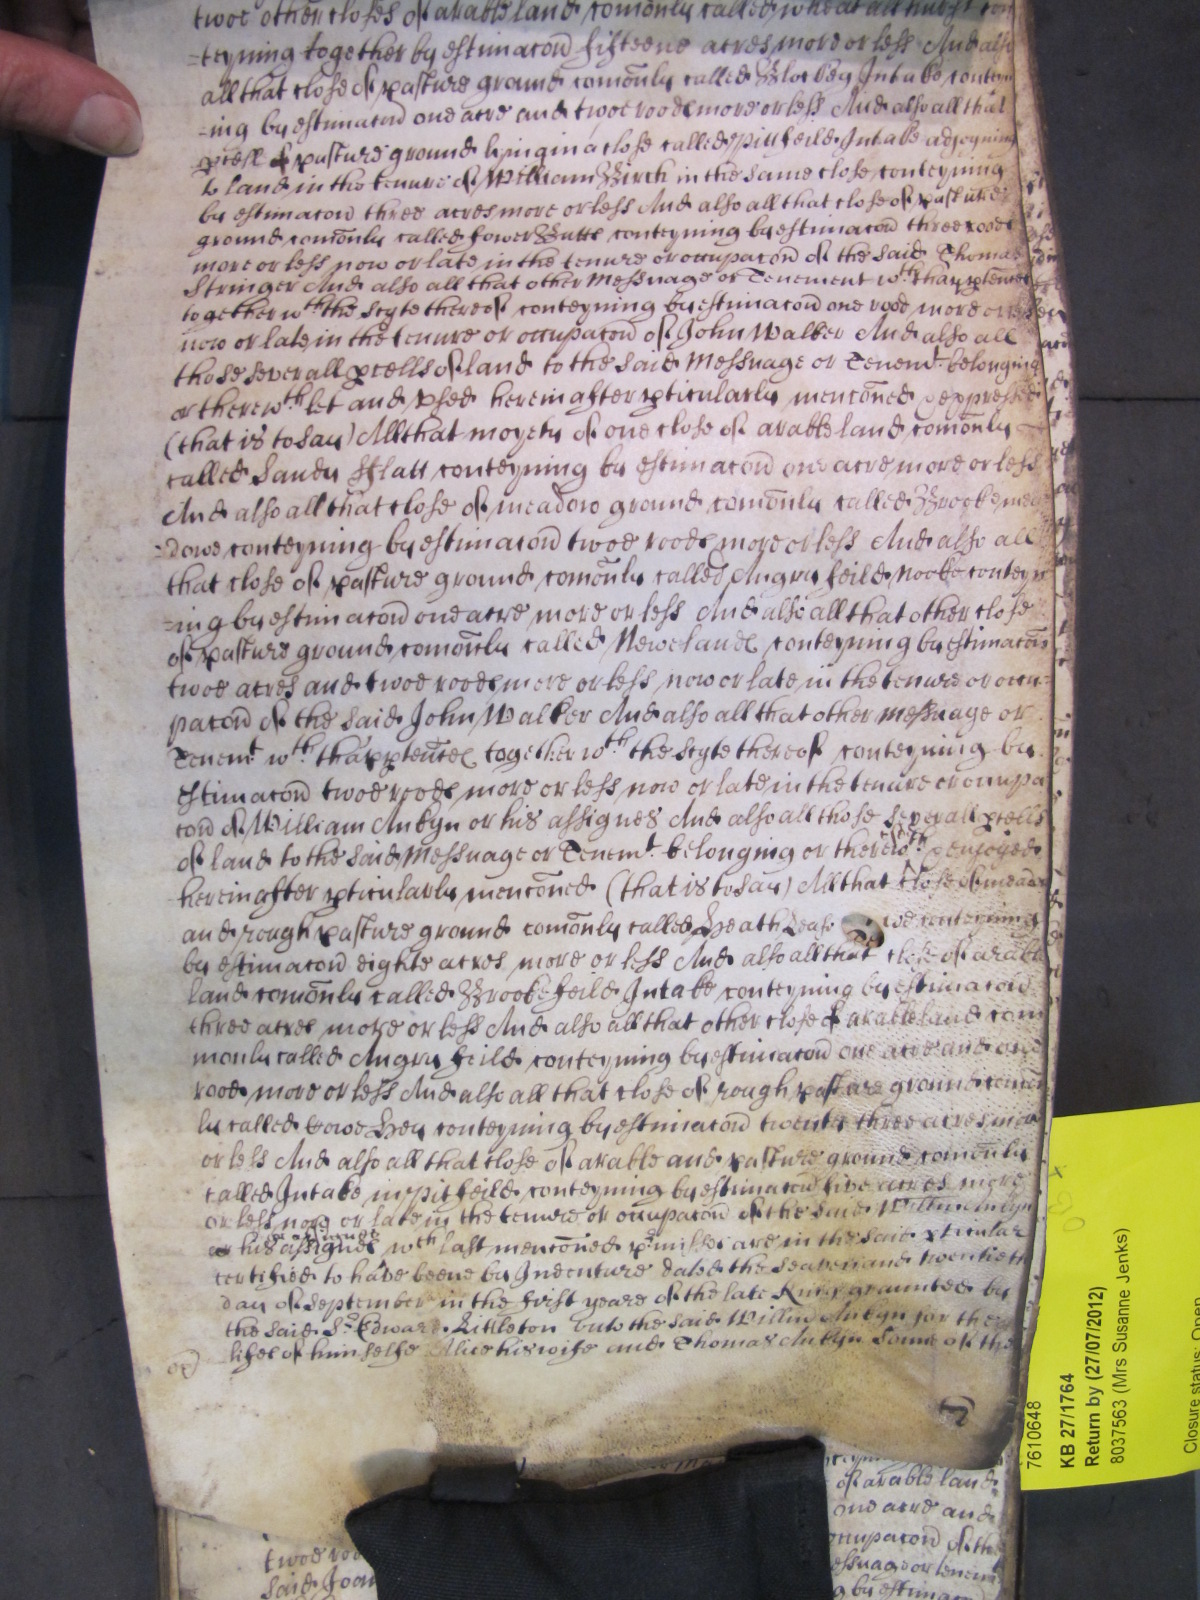 twoe other closes of arable land comonly called wheat
teyning together by estimacon fifteene acres more or less And also
all that close of pasture ground comonly called Blockley Intake conteyn
-ing by estimacon one acre and twoe roodes more or less And also all that
pcell of pasture ground lying in a close called Pitt feild Intake adjoyning
to land in the tenure of William Birch in the same close conteyning
by estimacon three acres more or less And also all that close of pasture
ground comonly called Lower Butts conteyning by estimacon three roodes
more or less now or late in the tenure or occupacon of the said Thomas
Stringer And also all that other Messuage or Tenement wth thapptences
together wth the scyte thereof conteyning by estimacon one rood more or less
now or late in the tenure or occupacon of John Walker And also all
those severall pcells of land to the said Messuage or Tenemt belonging
or therewth let and used hereinafter pticularly menconed & expressed
(that is to say) All that moyety of one close of arable land comonly
called Sandy Flatt conteyning by estimacon one acre more or less
And also all that close of meadow ground comonly called Brooke mea
-dowe conteyning by estimacon twoe roodes more or less And also all
that close of pasture ground comonly called Angry feild Nooke conteyn
-ing by estimacon one acre more or less And also all that other close
of pasture ground comonly called Newelands conteyning by estimacon
twoe acres and twoe roodes more or less now or late in the tenure or occu-
pacon of the said John Walker And also all that other Messuage or
Tenemt wth thapptences together wth the scyte thereof conteyning by
estimacon twoe roodes more or less now or late in the tenure or occupa
con of William Aukyn or his assignes And also all those severall pcells
of land to the said Messuage or Tenemt belonging or therewth enjoyed
hereinafter pticularly menconed (that is to say) All that close of meadow
and rough pasture ground comonly called Heath conteyning
by estimacon eighte acres more or less And also all that close of arable
land comonly called Brookefeild Intake conteyning by estimacon
three acres more or less And also all that other close of arable land com
monly called Angry feild conteyning by estimacon one acre and one
rood more or less And also all that close of rough pasture ground comon
ly called Cowe Hey conteyning by estimacon twenty three acres more
or less And also all that close of arable and pasture ground comonly
called Intake in pitfeild conteyning by estimacon five acres more
or less now or late in the tenure or occupacon of the said Willm Aukyn
or his assignes wch last menconed pmisses are in the said pticular
certified to have beene by Indenture dated the seaven and twentieth
day of September in the first yeare of the late King graunted by
the said Sr Edward Littleton unto the said Willm Aukyn for the
lifes of himselfe Alice his wife and Thomas Aukyn sonne of the
7
7610648
KB 27/1764
Return by (27/07/2012)
8037563 (Mrs Susanne Jenks)
Closure status: Open
of arable land
one acre and
occupacon of the
essuage or tenemt
g by estimacon
twoe roo
said Joan